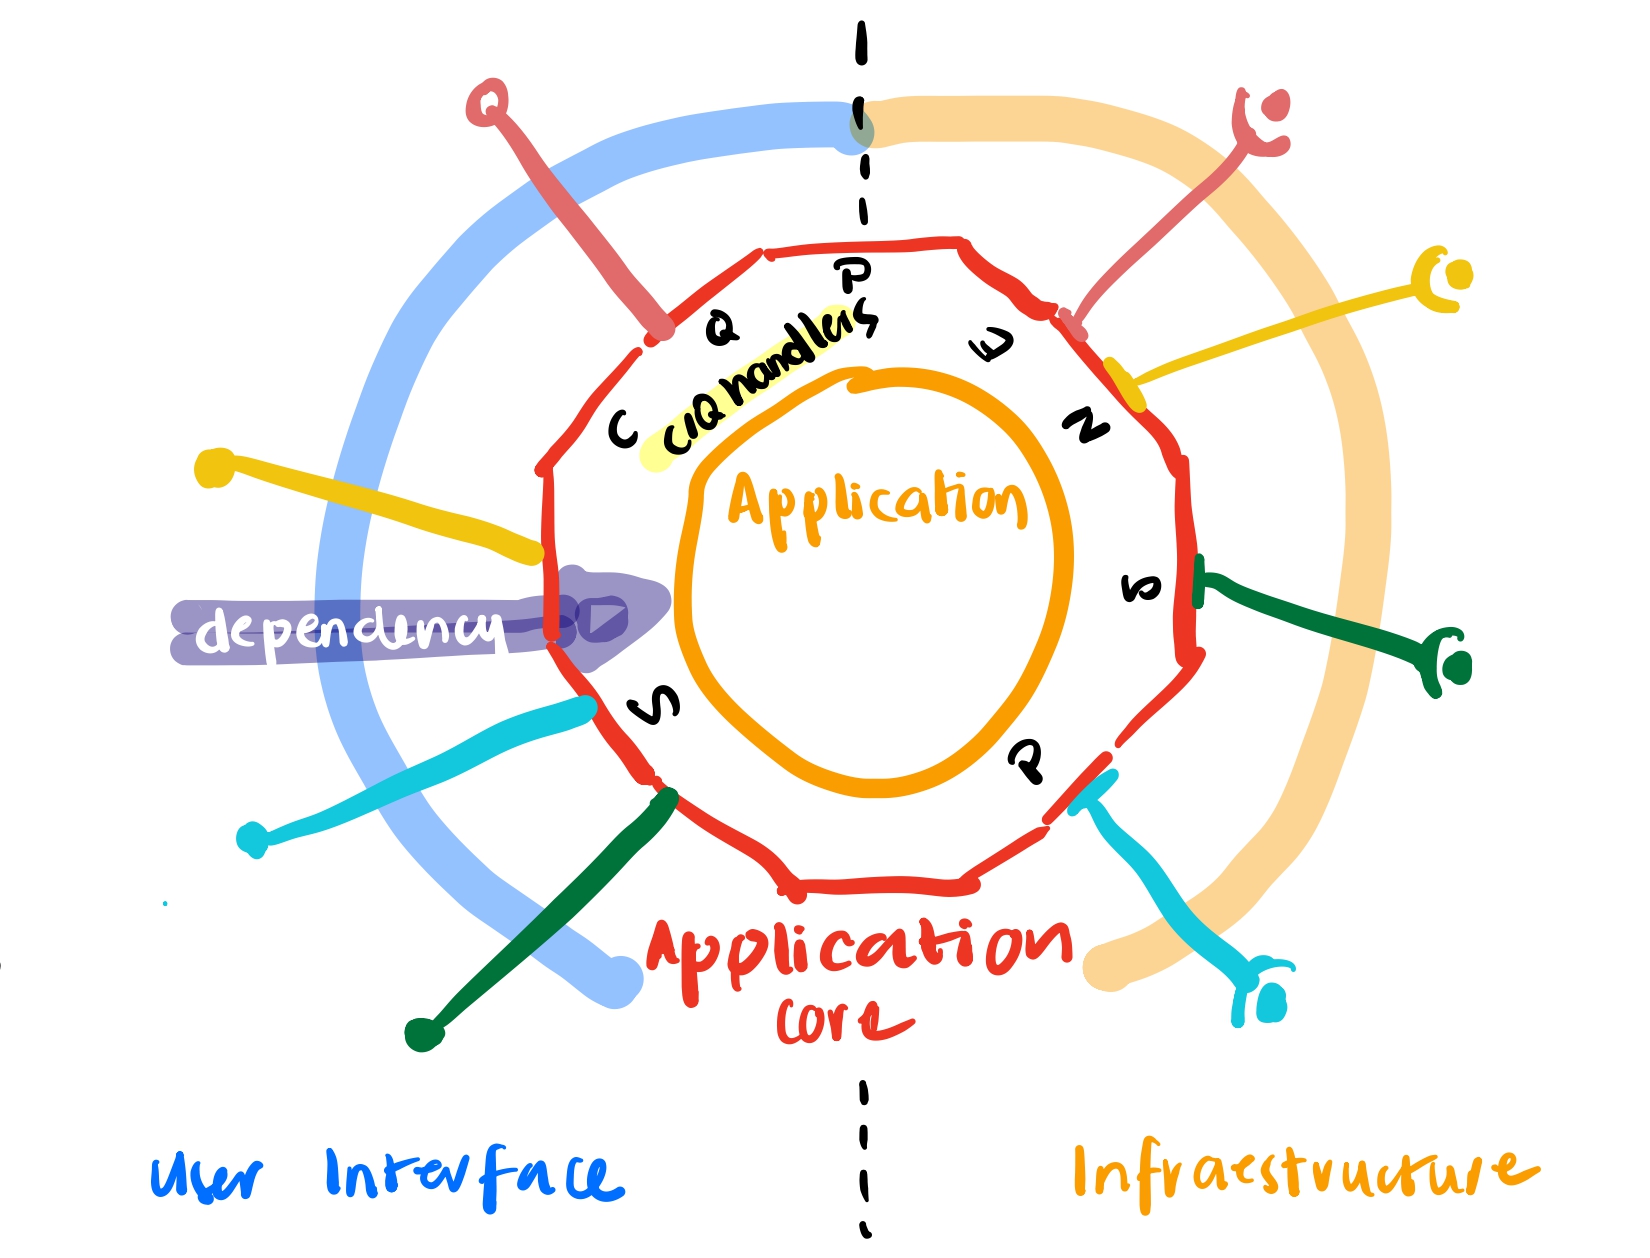 P
Q
E
C/Q handlers
C
N
Application
S
dependency
S
P
Application
core
User Interface
Infraestructure